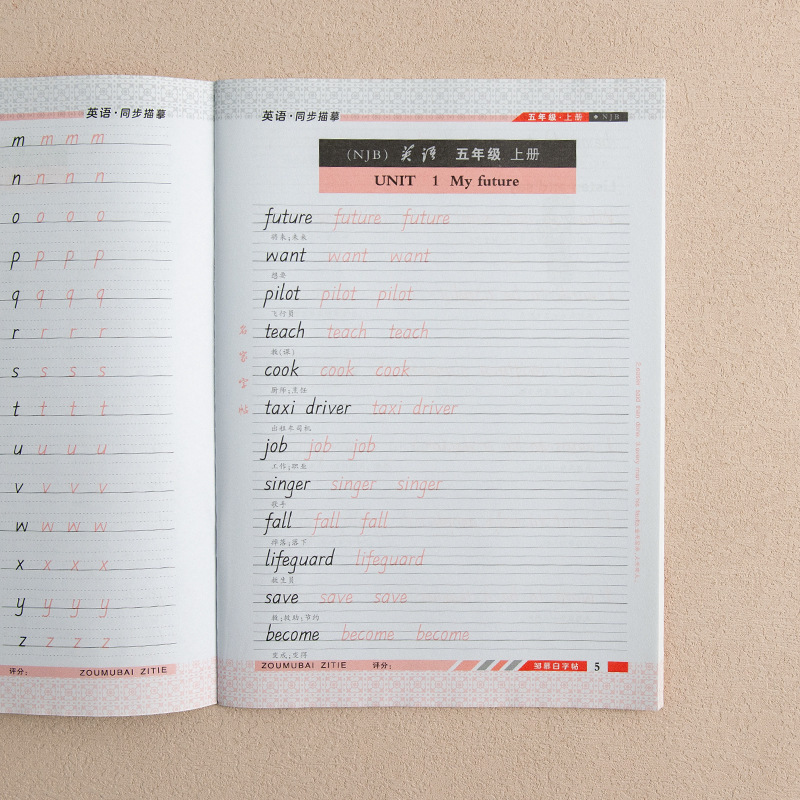 英语·同步描摹
m m m m
n n n n
o o o o
p p p p
q q q q
r r r r
s s s s
t t t t
u u u u
v v v v
w w w w
x x x x
y y y y
z z z z
评分:
ZOUMUBAI ZITIE
英语·同步描摹
五年级·上册 ◆ NJB
(NJB) 英语 五年级 上册
UNIT 1 My future
future future future
将来;未来
want want want
想要
pilot pilot pilot
飞行员
teach teach teach
教(课)
cook cook cook
厨师;烹饪
taxi driver taxi driver
出租车司机
job job job
工作;职业
singer singer singer
歌手
fall fall fall
摔落;落下
lifeguard lifeguard
救生员
save save save
救;救助;节约
become become become
变成;变得
名家字帖
ZOUMUBAI ZITIE 评分:
邹慕白字帖 5